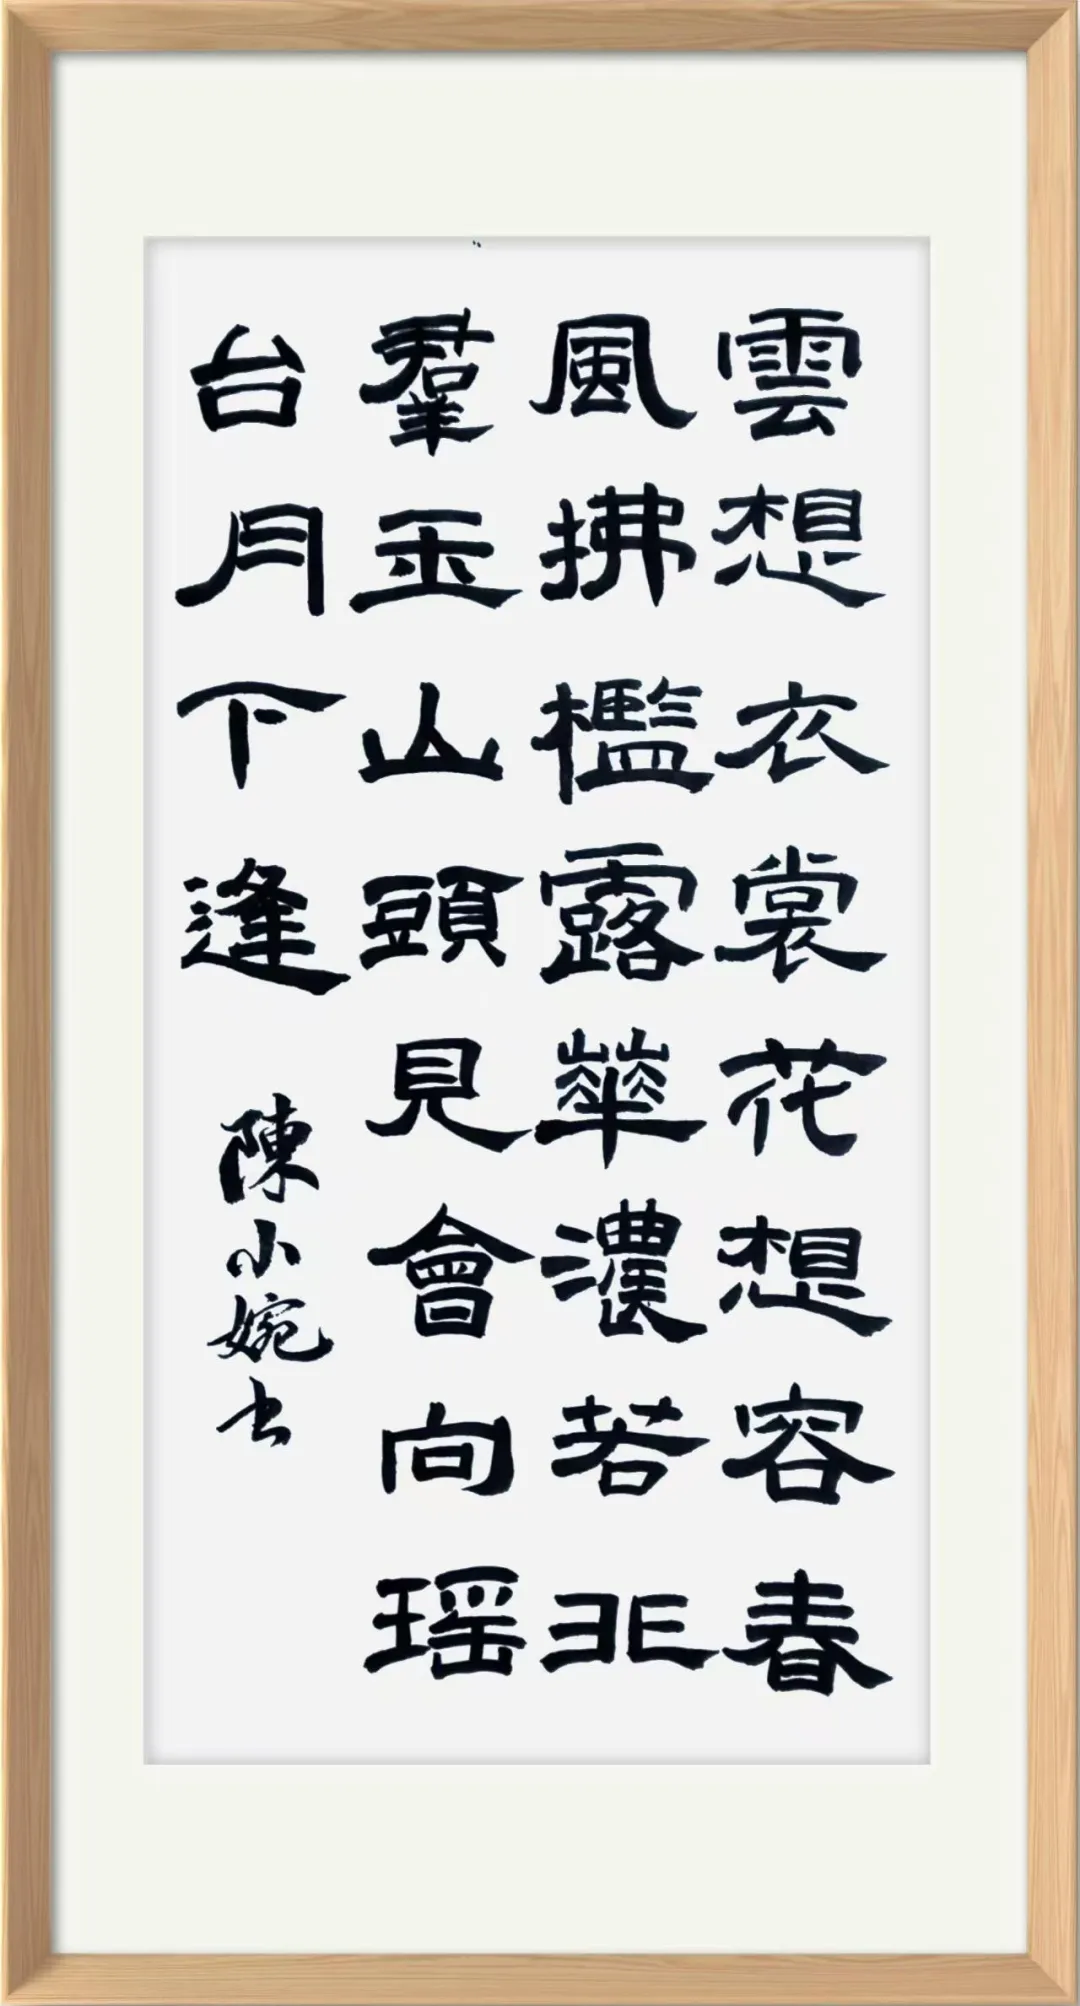 雲想衣裳花想容春
風拂檻露華濃若非
羣玉山頭見會向瑶
台月下逢
陳小婉书